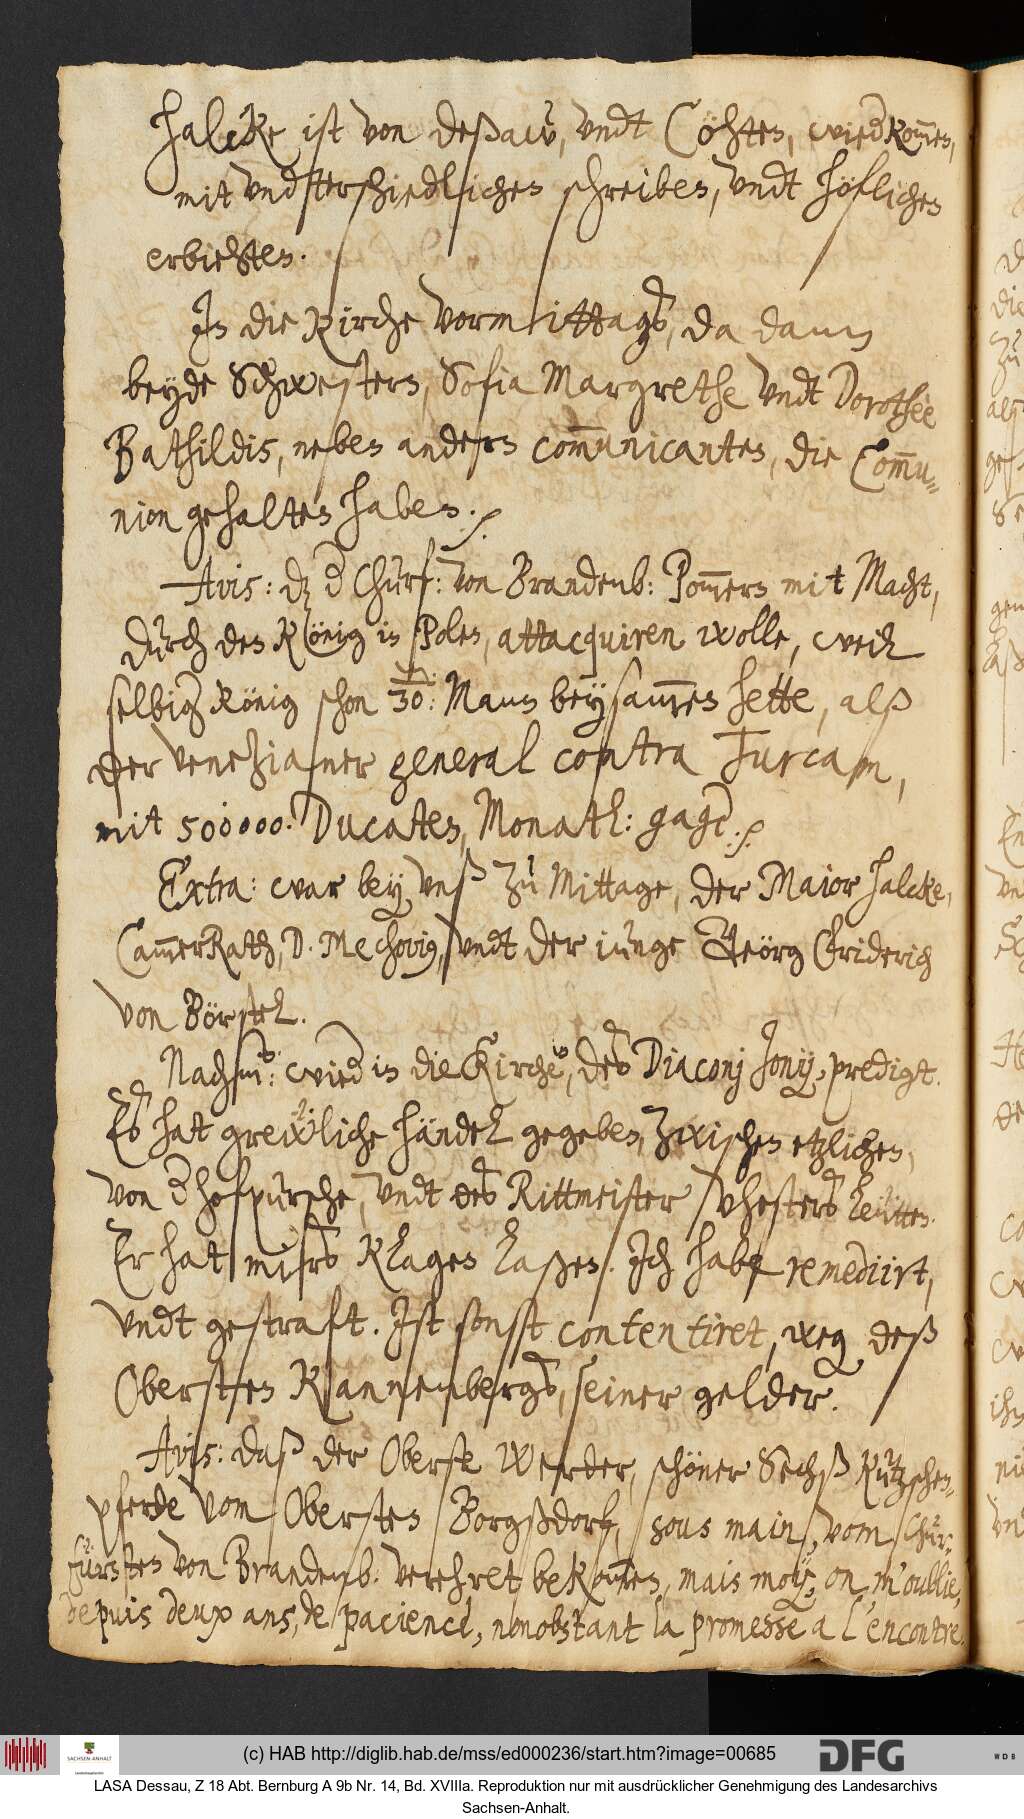 Halcke ist von Deßaw, vndt Cöhten, wied kom̄en,
mit vndterschiedlichen schreiben, vndt höflichen
erbiehten.
In die Kirche vormittags, da dann
beyde Schwestern, Sofia Margrethe vndt Dorothèe
Bathildis, neben andern com̄unicanten, die Com̄u-
nion gehalten haben. /.
Avis: dz d Churf: von Brandenb: Pom̄ern mit Macht,
durch den König in Polen, attacquiren wolle, weil
selbig König schon 30: Mann beysam̄en hette, alß
der Venezianer general contra Turcam,
mit 500000. Ducaten, Monatl: gage. /.
Extra: war bey vnß zu Mittage, der Maior Halcke,
Cam̄erRath, D. Mechovius, vndt der iunge Geörg Friderich
von Börstel.
Nachm: wied in die Kirche, des Diaconj Jonij, predigt.
Es hat grewliche händel gegeben, zwischen etzlichen,
von d hofpursche, vndt des Rittmeister Vhesters leütten.
Er hat mirs klagen laßen. Ich habe remediirt,
vndt gestraft. Ist sonst contentiret, weg deß
Obersten Kannenbergs, seiner gelder.
Avis: daß der Oberste Werder, schöner Sechß Kutzschen-
pferde vom Obersten Borgßdorf, sous main, vom Chur-
fürsten von Brandenb: verehret bekom̄en, mais moy, on m'oublie,
depuis deux ans, de pacience, nonobstant la promesse a l'encontre.
(c) HAB http://diglib.hab.de/mss/ed000236/start.htm?image=00685
DFG
WDB
SACHSEN-ANHALT
LASA Dessau, Z 18 Abt. Bernburg A 9b Nr. 14, Bd. XVIIIa. Reproduktion nur mit ausdrücklicher Genehmigung des Landesarchivs
Sachsen-Anhalt.